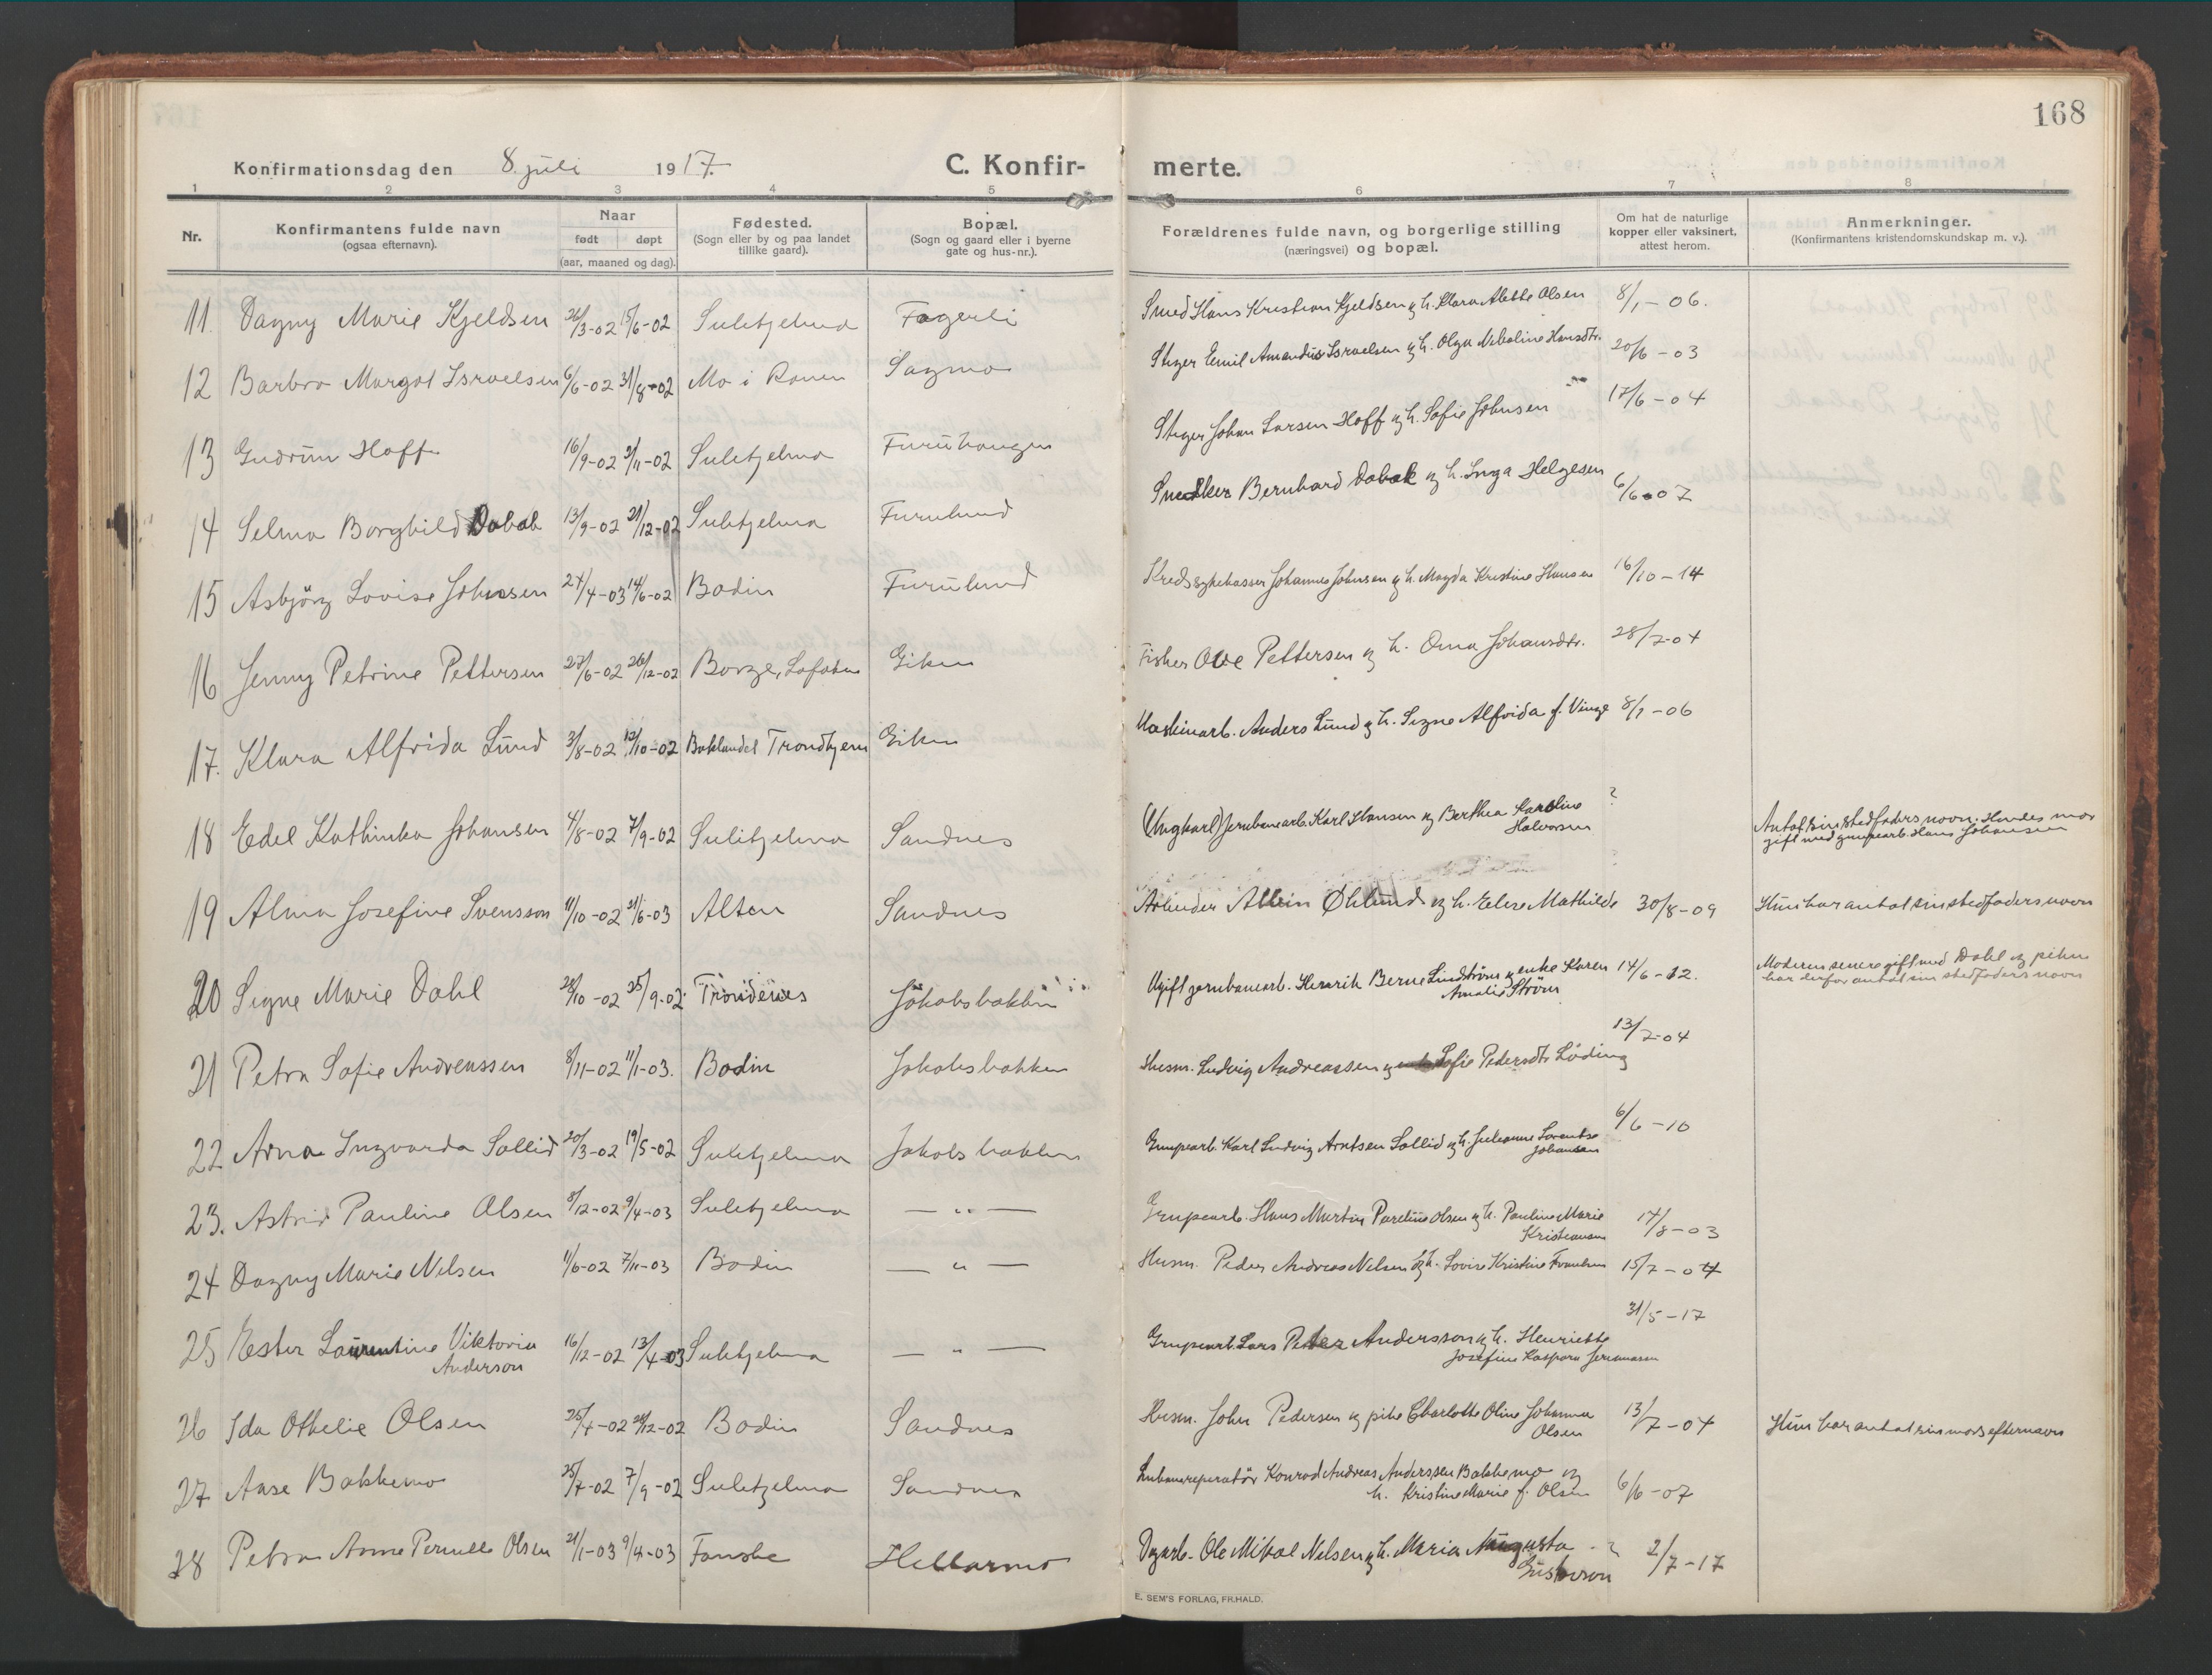 168
Konfirmationsdag den 8. juli 1917.
C. Konfirmerte.
1 2 3 4 5 6 7 8
Nr.
Konfirmantens fulde navn
(ogsaa efternavn).
Naar
født døpt
(aar, maaned og dag).
Fødested.
(Sogn eller by og paa landet
tillike gaard).
Bopæl.
(Sogn og gaard eller i byerne
gate og hus-nr.).
Forældrenes fulde navn, og borgerlige stilling
(næringsvei) og bopæl.
Om hat de naturlige
kopper eller vaksinert,
attest herom.
Anmerkninger.
(Konfirmantens kristendomskundskap m. v.).
11. Dagny Marie Kjeldsen 26/3-02 15/6-02 Sulitjelma Fagerli Smed Hans Kristian Kjeldsen og h. Klara Alette Olsen 8/1-06.
12 Barbro Margot Israelsen 6/6-02 31/8-02 Mo i Ranen Sagmo Stiger Emil Amandus Israelsen og h. Olga Nikoline Hansdtr. 20/6-03
13 Gudrun Hoff 16/9-02 2/11-02 Sulitjelma Furuhaugen Stiger Johan Larsen Hoff og h. Sofie Johnsen 17/6-04
14 Selma Borghild Dabak 13/9-02 21/12-02 Sulitjelma Furulund Snedker Bernhard Dabak og h. Inga Helgesen 6/6-07
15 Asbjörg Lovise Johnsen 27/4-03 14/6-02 Bodin Furulund Kredssykekasser Johannes Johnsen og h. Magda Kristine Hansen 16/10-14
16 Jenny Petrine Pettersen 27/6-02 26/12-02 Borge, Lofoten Giken Fisker Ove Pettersen og h. Oma Johansdtr. 28/7-04
17. Klara Alfrida Lund 3/8-02 12/10-02 Baklandet Trondhjem Giken Maskinarb. Anders Lund og h. Signe Alfrida f. Vinge 8/1-06
18 Edel Kathinka Johansen 4/8-02 7/9-02 Sulitjelma Sandnes (Ungkarl) Jernbanearb. Karl Hansen og Berthea Karoline ?
Halvorsen
Antat sin stedfaders navn. Hendes mor
gift med grupearb. Hans Johansen
19 Alma Josefine Svensson 11/10-02 21/6-03 Alten Sandnes Arbeider Albin Øhlund og h. Elise Mathilde 30/8-09 Hun har antat sin stedfaders navn
20 Signe Marie Dahl 28/10-02 25/9-02 Trondenes Jakobsbakken Ugift jernbanearb. Henrik Berne Lindström og enke Karen 14/6-12.
Amalie Ström
Moderen senere gift med Dahl og piken
har derfor antat sin stedfaders navn
21 Petra Sofie Andreassen 8/11-02 11/1-03. Bodin Jakobsbakken Husm. Ludvig Andreassen og Sofie Pedersdtr Löding 13/7-04
22 Arna Ingvarda Sollid 20/3-02 19/5-02 Sulitjelma Jakobsbakken Grupearb. Karl Ludvig Arntsen Sollid og h. Julianne Lorentse 6/6-10
Johansen
23. Astrid Pauline Olsen 8/12-02 9/4-03 Sulitjelma — " — Grupearb. Hans Martin Parelius Olsen og h. Pauline Marie 17/8-03
Kristiansen
24 Dagny Marie Nilsen 11/6-02 7/11-03 Bodin — " — Husm. Peder Andreas Nilsen og h. Lovise Kristine 15/7-04
25 Ester Laurentine Viktoria 16/12-02 13/4-03 Sulitjelma — " — Grupearb. Lars Peter Andersson og h. Henriette 31/5-17
Anderson Josefine Kaspara Jeremiassen
26 Ida Othelie Olsen 25/4-02 26/12-02 Bodin Sandnes Husm. John Pedersen og pike Charlotte Oline Johanna 13/7-04 Hun har antat sin mors efternavn
Olsen
27 Aase Bakkemo 25/7-02 7/9-02 Sulitjelma Sandnes Linbanereparatör Konrad Andreas Anderssen Bakkemo og 6/6-07
h. Kristine Marie f. Olsen
28 Petra Anne Pernille Olsen 21/1-03 9/4-03 Fauske Hellarmo Dagarb. Ole Mikal Nilsen og h. Maria Augusta 2/7-17
Gustavson
E. SEM'S FORLAG, FR.HALD.